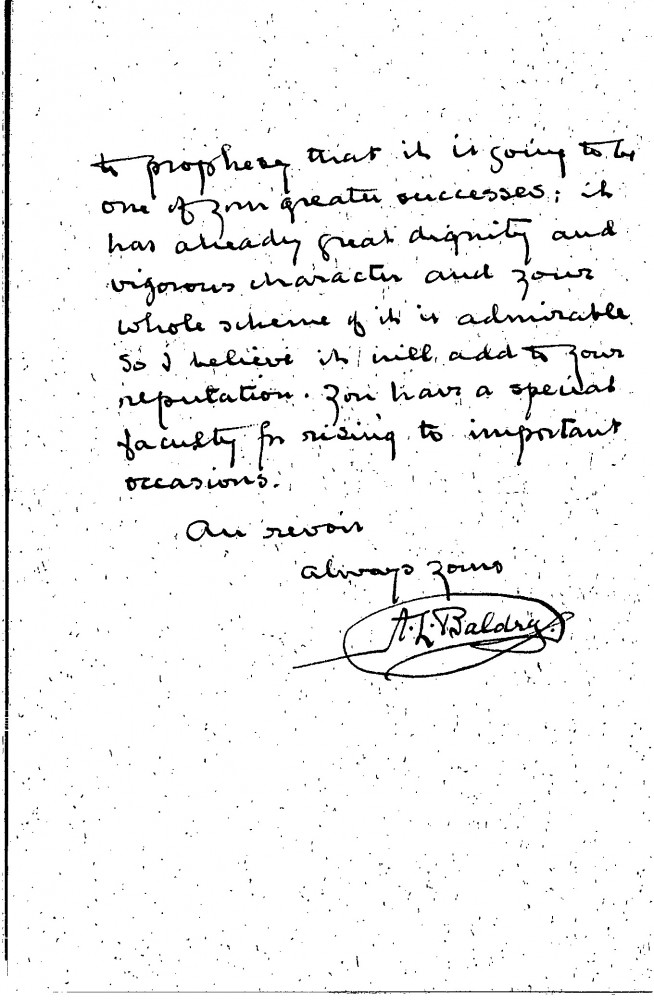 to prophesy that it is going to be
one of your greater successes; it
has already great dignity and
vigorous character and your
whole scheme of it is admirable
so I believe it will add to your
reputation. You have a special
faculty for rising to important
occasions.
Au revoir
always yours
A.L. Baldry.